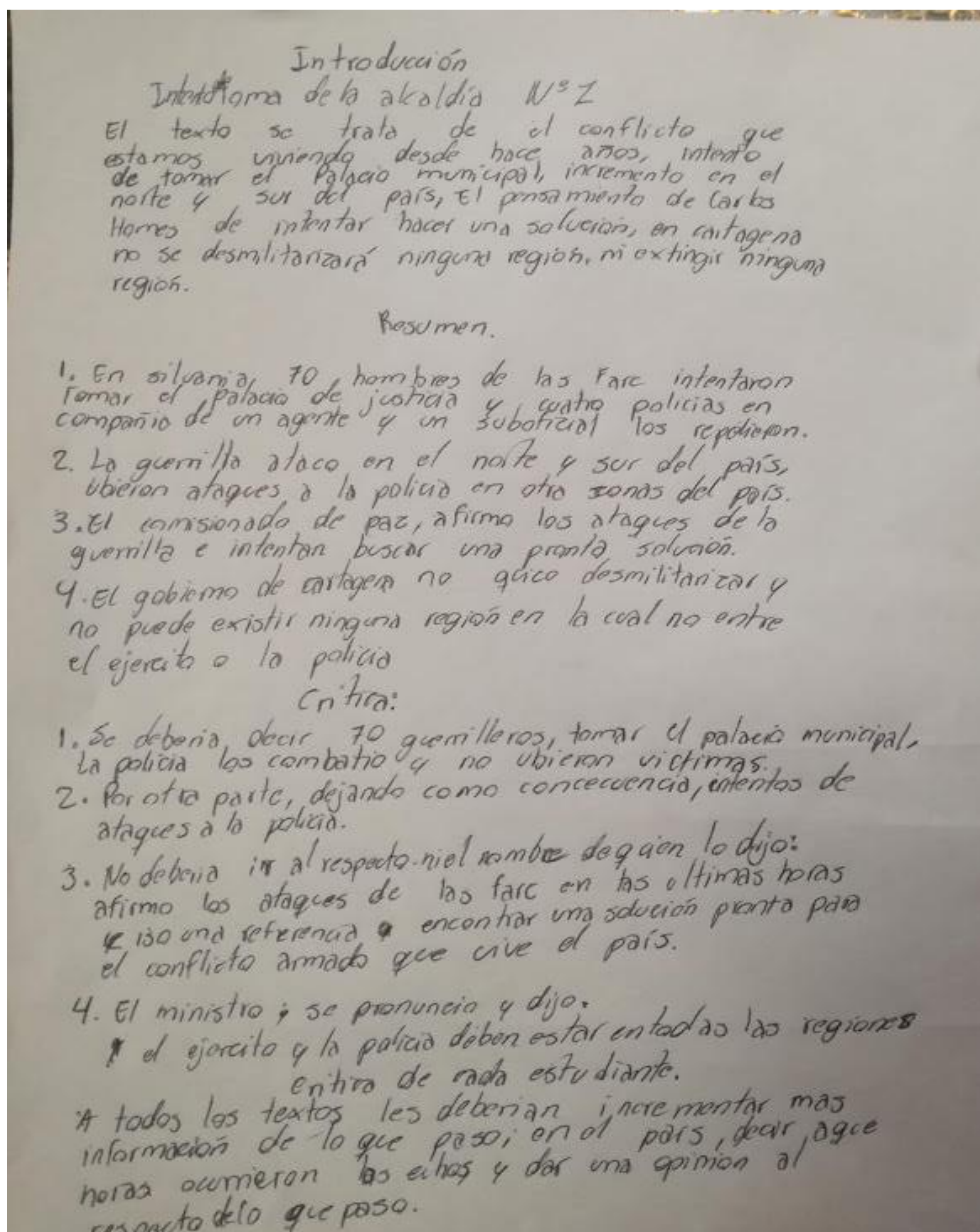 Introducción
toma de la alcaldía N°
El texto se trata de el conflicto que
estamos viviendo desde hace años, intento
de tomar el Palacio municipal, incremento en el
norte y sur del país, El pensamiento de Carlos
Homes de intentar hacer una solución, en cartagena
no se desmilitarizará ninguna región, ni extingir ninguna
región.
Resumen.
1. En silvania, 70 hombres de las Farc intentaron
Tomar el palacio de justicia y cuatro policias en
compañia de un agente y un suboficial los repelieron.
2. La guerrilla ataco en el norte y sur del país,
ubieron ataques a la policia en otra zonas del país.
3. El comisionado de paz, afirmo los ataques de la
guerrilla e intentan buscar una pronta solución.
4. El gobierno de cartagena no quico desmilitarizar y
no puede existir ninguna región en la cual no entre
el ejercito o la policia
Critica:
1. Se deberia decir 70 guerrilleros, tomar el palacio municipal,
La policia los combatio y no ubieron victimas.
2. Por otra parte, dejando como concecuencia, intentos de
ataques a la policia.
3. No deberia ir al respecto ni el nombre de quien lo dijo:
afirmo los ataques de las farc en las ultimas horas
e iso una referencia a encontrar una solución pronta para
el conflicto armado que vive el país.
4. El ministro; se pronuncio y dijo.
el ejercito y la policia deben estar en todas las regiones
Critica de cada estudiante.
A todos los textos les deberian incrementar mas
información de lo que paso; en el pais, decir, aque
horas ocurrieron los echos y dar una opinion al
respecto delo que paso.